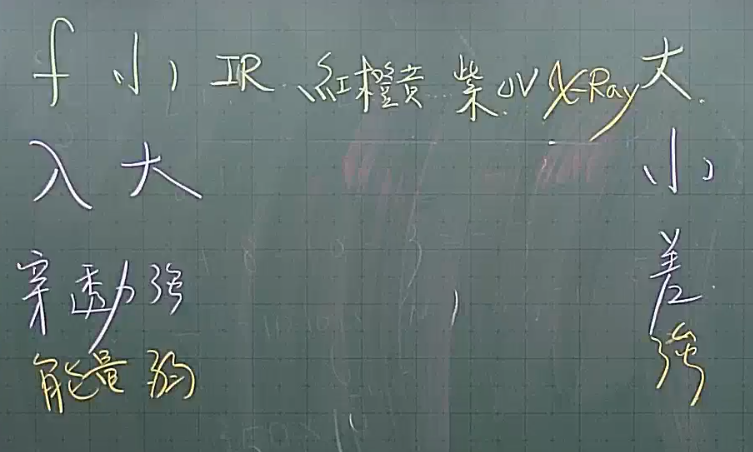 f 小 IR、紅橙黃…紫.UV X-Ray 大.
λ 大 小
穿透力強 差.
能量弱 強